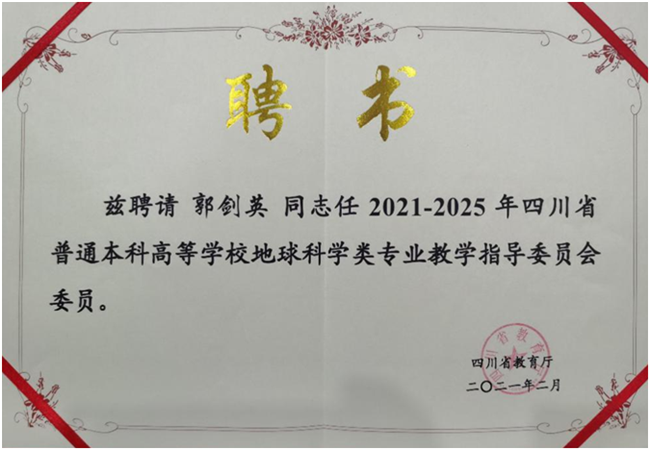 聘 书
兹聘请 郭剑英 同志任 2021-2025 年四川省
普通本科高等学校地球科学类专业教学指导委员会
委员。
四川省教育厅
二〇二一年二月
四川省教育厅